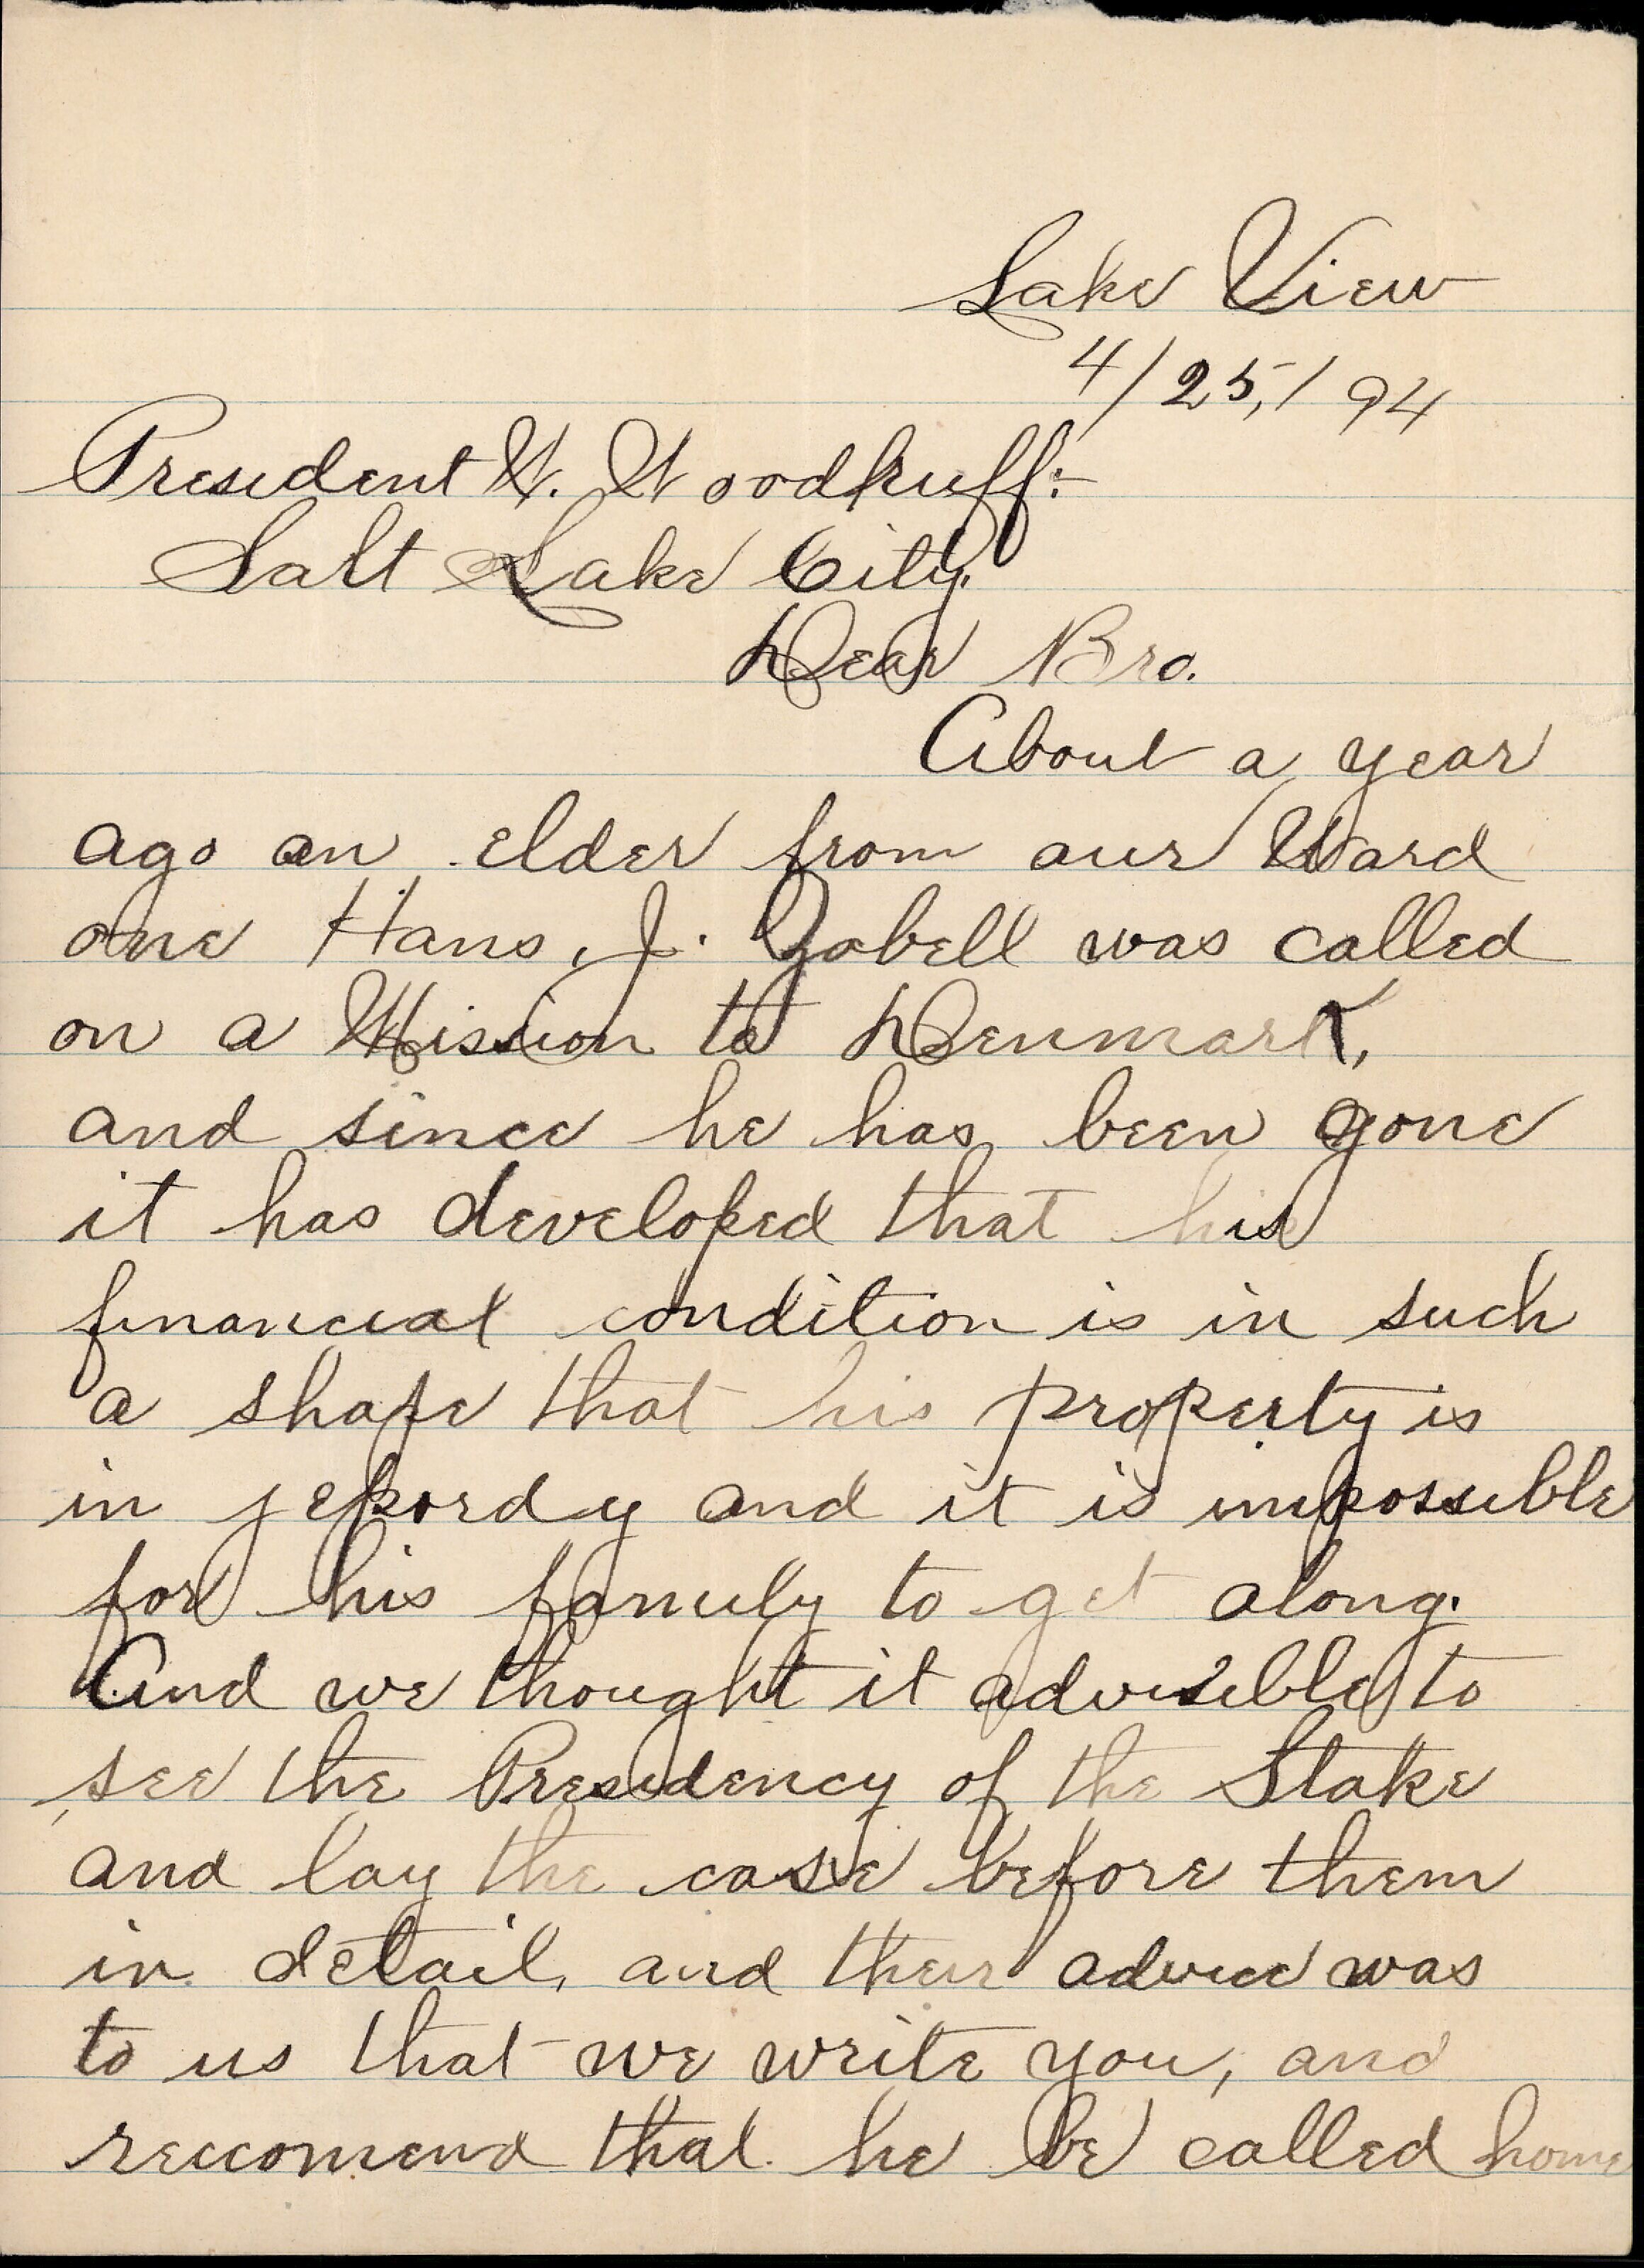 Lake View
4/25,/94
President W. Woodruff:-
Salt Lake City.
Dear Bro.
About a year
ago an elder from our Ward
one Hans, J. Zobell was called
on a Mission to Denmark,
and since he has been gone
it has developed that his
financial condition is in such
a shape that his property is
in jepordy and it is impossible
for his family to get along.
And we thought it advisible to
see the Presidency of the Stake
and lay the case before them
in detail, and their advice was
to us that we write you, and
reccomend that he be called home